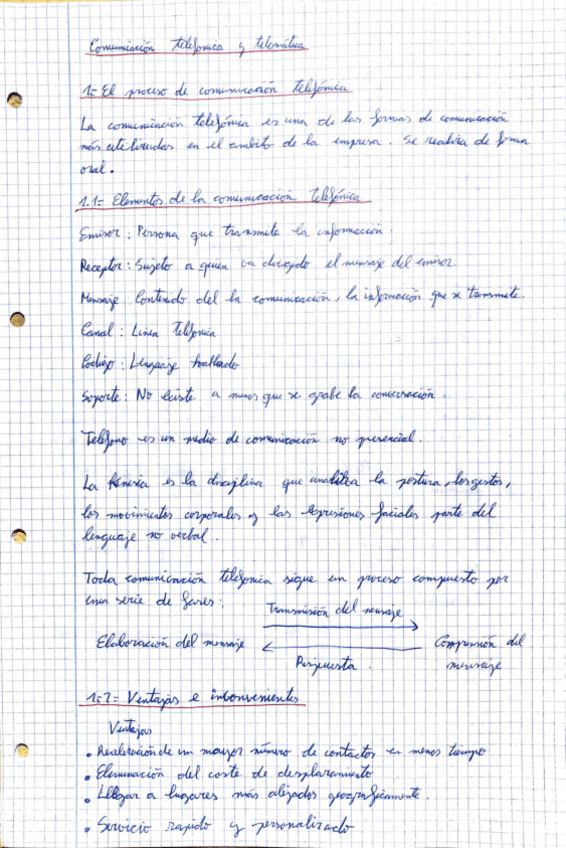 Comunicación telefonica y telemática
1.- El proceso de comunicación telefónica
La comunicación telefónica es una de las formas de comunicación
más utilizadas en el ambito de la empresa. Se realiza de forma
oral.
1.1= Elementos de la comunicación telefónica
Emisor: Persona que transmite la información.
Receptor: Sujeto a quien va dirigido el mensaje del emisor.
Mensaje: Contenido del la comunicación, la información que se transmite.
Canal: Linea telefonica
Codigo: Lenguaje hablado
Soporte: No existe a menos que se grabe la conversación.
Teléfono es un medio de comunicación no presencial.
La Kinesia es la disciplina que analiza la postura, los gestos,
los movimientos corporales y las expresiones faciales parte del
lenguaje no verbal.
Toda comunicación telefonica sigue un proceso compuesto por
una serie de fases:
Transmisión del mensaje
Elaboración del mensaje
Comprensión del
mensaje
Respuesta.
1.2= Ventajas e inconvenientes
Ventajas
• Realización de un mayor número de contactos en menos tiempo
• Eliminación del coste de desplazamiento
• Llegar a lugares más alejados geograficamente.
• Servicio rapido y personalizado